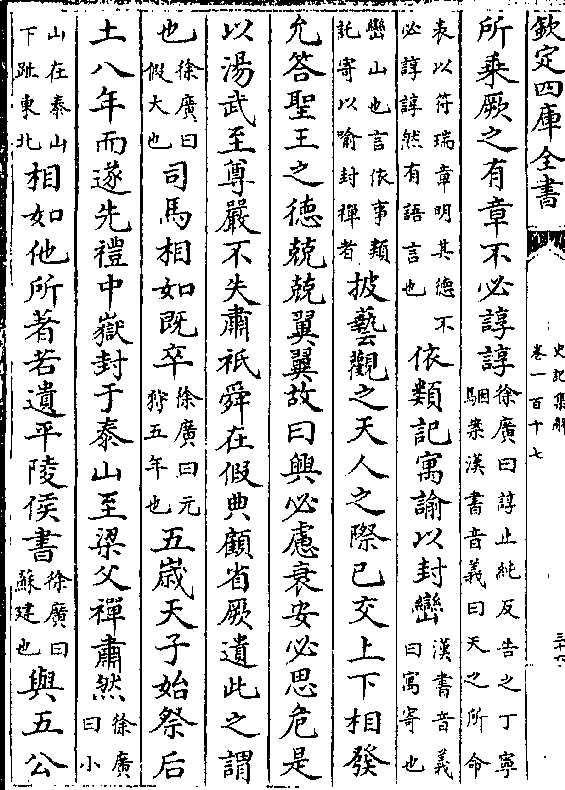 欽定四庫全書
史記集解
卷一百十七
三十六
所乘厥之有章不必諄諄徐廣曰諄止純反告之丁寧駰案漢書音義曰天之所命
表以符瑞章明其德不必諄諄然有語言也依類記寓諭以封巒漢書音義曰寓寄也
巒山也言依事類託寄以喻封禪者披藝觀之天人之際已交上下相發
允答聖王之德兢兢翼翼故曰興必慮衰安必思危是
以湯武至尊嚴不失肅祗舜在假典顧省厥遺此之謂
也徐廣曰假大也司馬相如既卒徐廣曰元狩五年也五歲天子始祭后
土八年而遂先禮中嶽封于泰山至梁父禪肅然徐廣曰小
山在泰山下趾東北相如他所著若遺平陵侯書徐廣曰蘇建也與五公